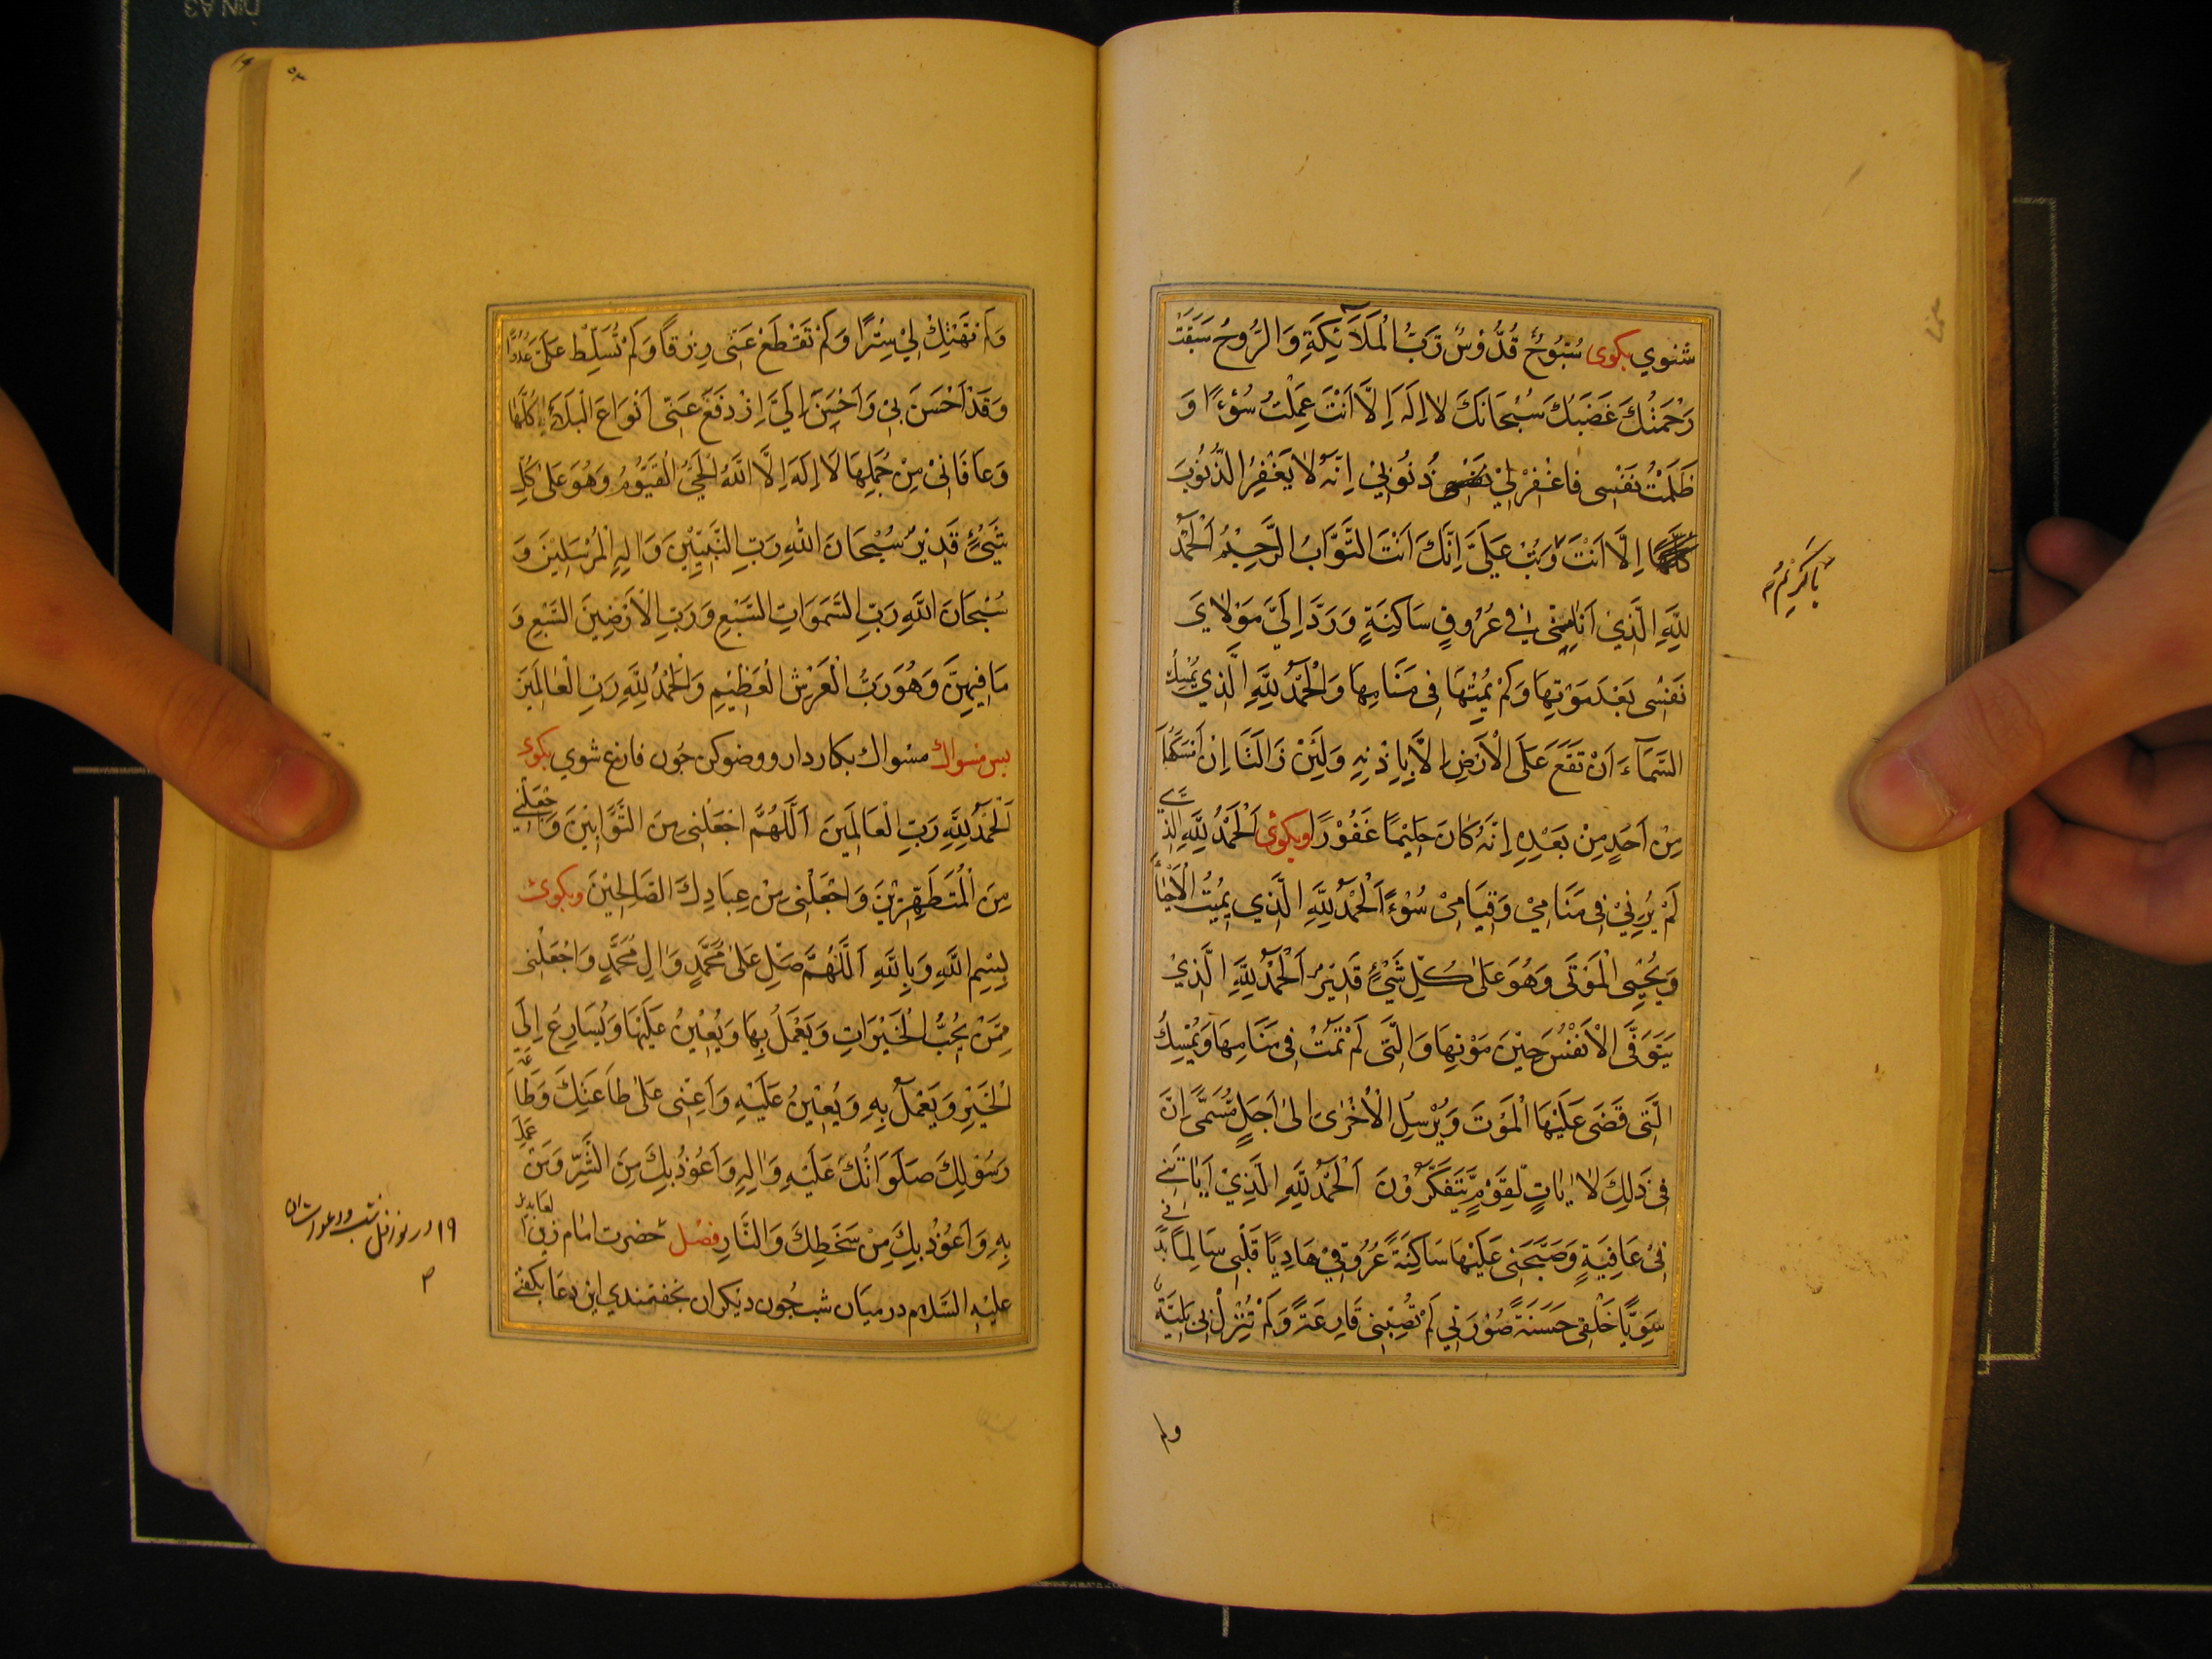 شنوي بكوى سُبُّوحٌ قُدُّوسٌ رَبُّ الْمَلَائِكَةِ وَالرُّوحُ سَبَقَتْ
رَحْمَتُكَ غَضَبَكَ سُبْحَانَكَ لَا اِلَهَ اِلَّا اَنْتَ عَمِلْتُ سُوْءًا وَ
ظَلَمْتُ نَفْسِى فَاغْفِرْ لِيْ ذُنُوْبِيْ اِنَّهُ لَا يَغْفِرُ الذُّنُوْبَ
كُلَّهَا اِلَّا اَنْتَ وَتُبْ عَلَيَّ اِنَّكَ اَنْتَ التَّوَّابُ الرَّحِيْمُ اَلْحَمْدُ
لِلَّهِ الَّذِيْ اَنَامَنِى فِي عُرُوقٍ سَاكِنَةٍ وَرَدَّ اِلَيَّ مَوْلَايَ
نَفْسِى بَعْدَ مَوْتِهَا وَلَمْ يُمِتْهَا فِى مَنَامِهَا وَالْحَمْدُ لِلَّهِ الَّذِي يُمْسِكُ
السَّمَاءَ اَنْ تَقَعَ عَلَى الْاَرْضِ اِلَّا بِاِذْنِهِ وَلَئِنْ زَالَتَا اِنْ اَمْسَكَهُمَا
مِنْ اَحَدٍ مِنْ بَعْدِهِ اِنَّهُ كَانَ حَلِيْمًا غَفُوْرًا وبكوئ اَلْحَمْدُ لِلَّهِ الَّذِي
لَمْ يُرِنِيْ فِى مَنَامِيْ وَقِيَامِىْ سُوْءًا اَلْحَمْدُ لِلَّهِ الَّذِي يُمِيْتُ الْاَحْيَاءَ
وَيُحْيِى الْمَوْتَى وَهُوَ عَلَى كُلِّ شَيْءٍ قَدِيْرٌ اَلْحَمْدُ لِلَّهِ الَّذِيْ
يَتَوَفَّى الْاَنْفُسَ حِيْنَ مَوْتِهَا وَالَّتِى لَمْ تَمُتْ فِى مَنَامِهَا وَيُمْسِكُ
الَّتِى قَضَى عَلَيْهَا الْمَوْتَ وَيُرْسِلُ الْاُخْرَى اِلَى اَجَلٍ مُسَمًّى اِنَّ
فِى ذَلِكَ لَايَاتٍ لِقَوْمٍ يَتَفَكَّرُوْنَ اَلْحَمْدُ لِلَّهِ الَّذِيْ اَبَاتَنِىْ
فِىْ عَافِيَةٍ وَصَبَّحَنِى عَلَيْهَا سَاكِنَةً عُرُوقِيْ هَادِيًا قَلْبِى سَالِمًا بَدَنِي
سَوِيًّا خَلْقِى حَسَنَةً صُوْرَتِي لَمْ تُصِبْنِى قَارِعَةٌ وَلَمْ تُنْزِلْ بِى بَلِيَّةٌ
يا كَرِيمُ
ولم
وَلَمْ تَهْتِكْ لِيْ سِتْرًا وَلَمْ تَقْطَعْ عَنِّى رِزْقًا وَلَمْ تُسَلِّطْ عَلَيَّ عَدُوًّا
وَقَدْ اَحْسَنَ بِيْ وَاَحْسَنَ اِلَيَّ اِذْ دَفَعَ عَنِّى اَنْوَاعَ الْبَلَاءِ كُلَّهَا
وَعَافَانِىْ مِنْ جُمَلِهَا لَا اِلَهَ اِلَّا اللَّهُ الْحَيُّ الْقَيُّوْمُ وَهُوَ عَلَى كُلِّ
شَيْءٍ قَدِيْرٌ سُبْحَانَ اللَّهِ رَبِّ النَّبِيِّيْنَ وَاِلَهِ الْمُرْسَلِيْنَ وَ
سُبْحَانَ اللَّهِ رَبِّ السَّمَوَاتِ السَّبْعِ وَرَبِّ الْاَرَضِيْنَ السَّبْعِ وَ
مَا فِيْهِنَّ وَهُوَ رَبُّ الْعَرْشِ الْعَظِيْمِ وَالْحَمْدُ لِلَّهِ رَبِّ الْعَالَمِيْنَ
پس مسواك مسواك بكار دار و وضو كن چون فارغ شوي بكوى
اَلْحَمْدُ لِلَّهِ رَبِّ الْعَالَمِيْنَ اَللَّهُمَّ اجْعَلْنِى مِنَ التَّوَّابِيْنَ وَاجْعَلْنِي
مِنَ الْمُتَطَهِّرِيْنَ وَاجْعَلْنِى مِنْ عِبَادِكَ الصَّالِحِيْنَ وبكوئ
بِسْمِ اللَّهِ وَبِاللَّهِ اَللَّهُمَّ صَلِّ عَلَى مُحَمَّدٍ وَالِ مُحَمَّدٍ وَاجْعَلْنِى
مِمَّنْ يُحِبُّ الْخَيْرَاتِ وَيَعْمَلُ بِهَا وَيُعِيْنُ عَلَيْهَا وَيُسَارِعُ اِلَى
الْخَيْرِ وَيَعْمَلُ بِهِ وَيُعِيْنُ عَلَيْهِ وَاَعِنِّى عَلَى طَاعَتِكَ وَطَاعَةِ
رَسُوْلِكَ صَلَوَاتُكَ عَلَيْهِ وَالِهِ وَاَعُوْذُ بِكَ مِنَ الشَّرِّ وَمَنْ عَمِلَ
بِهِ وَاَعُوْذُ بِكَ مِنْ سَخَطِكَ وَالنَّارِ فصل حضرت امام زين العابدين
عليه السلام در ميان شب چون ديكران بخفتندي اين دعا بكفتي
١٩ در نوافل شب و دعوات ان